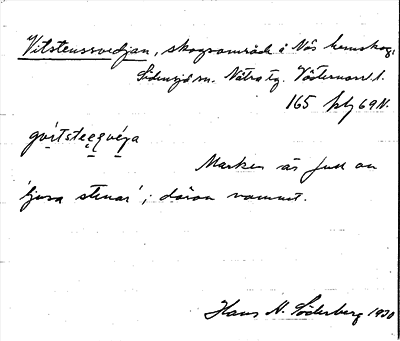 Vitstenssvedjan, skogsområde å Näs hemskog,
Sidensjö sn. Nätra tg. Västernorrl. l.
165 kbl 69 N.
gvi̱tstee̱ṉvéya
Marken är full av
'ljusa stenar'; därav namnet.
Hans N. Söderberg 1930